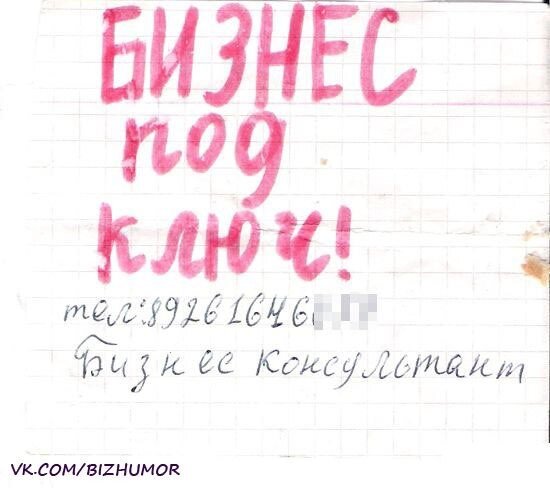 БИЗНЕС
под
ключ!
тел:89261646
Бизнес консультант
VK.COM/BIZHUMOR